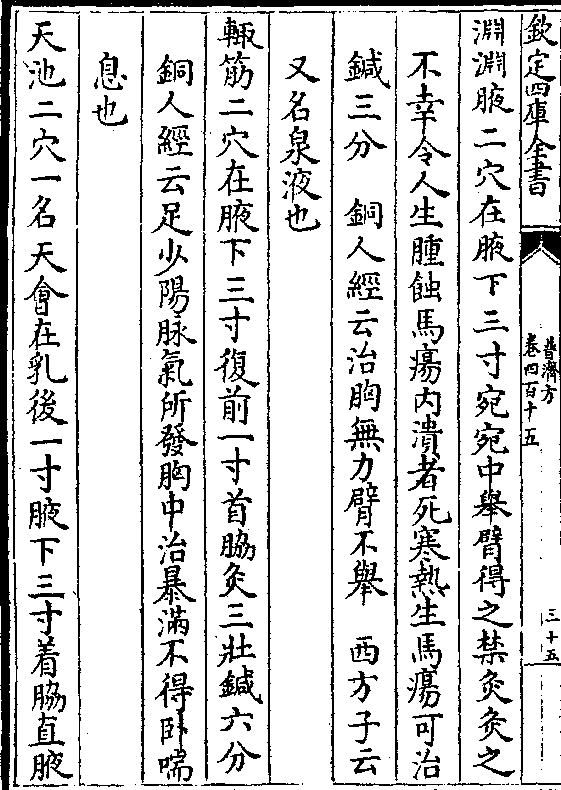 欽定四庫全書
普濟方
卷四百十五
三十五
淵淵腋二穴在腋下三寸宛宛中舉臂得之禁灸灸之
不幸令人生腫蝕馬瘍內潰者死寒熱生馬瘍可治
鍼三分　銅人經云治胸無力臂不舉　西方子云
又名泉液也
輙筋二穴在腋下三寸復前一寸首脇灸三壯鍼六分
銅人經云足少陽脉氣所發胸中治暴滿不得卧喘
息也
天池二穴一名天會在乳後一寸腋下三寸着脇直腋